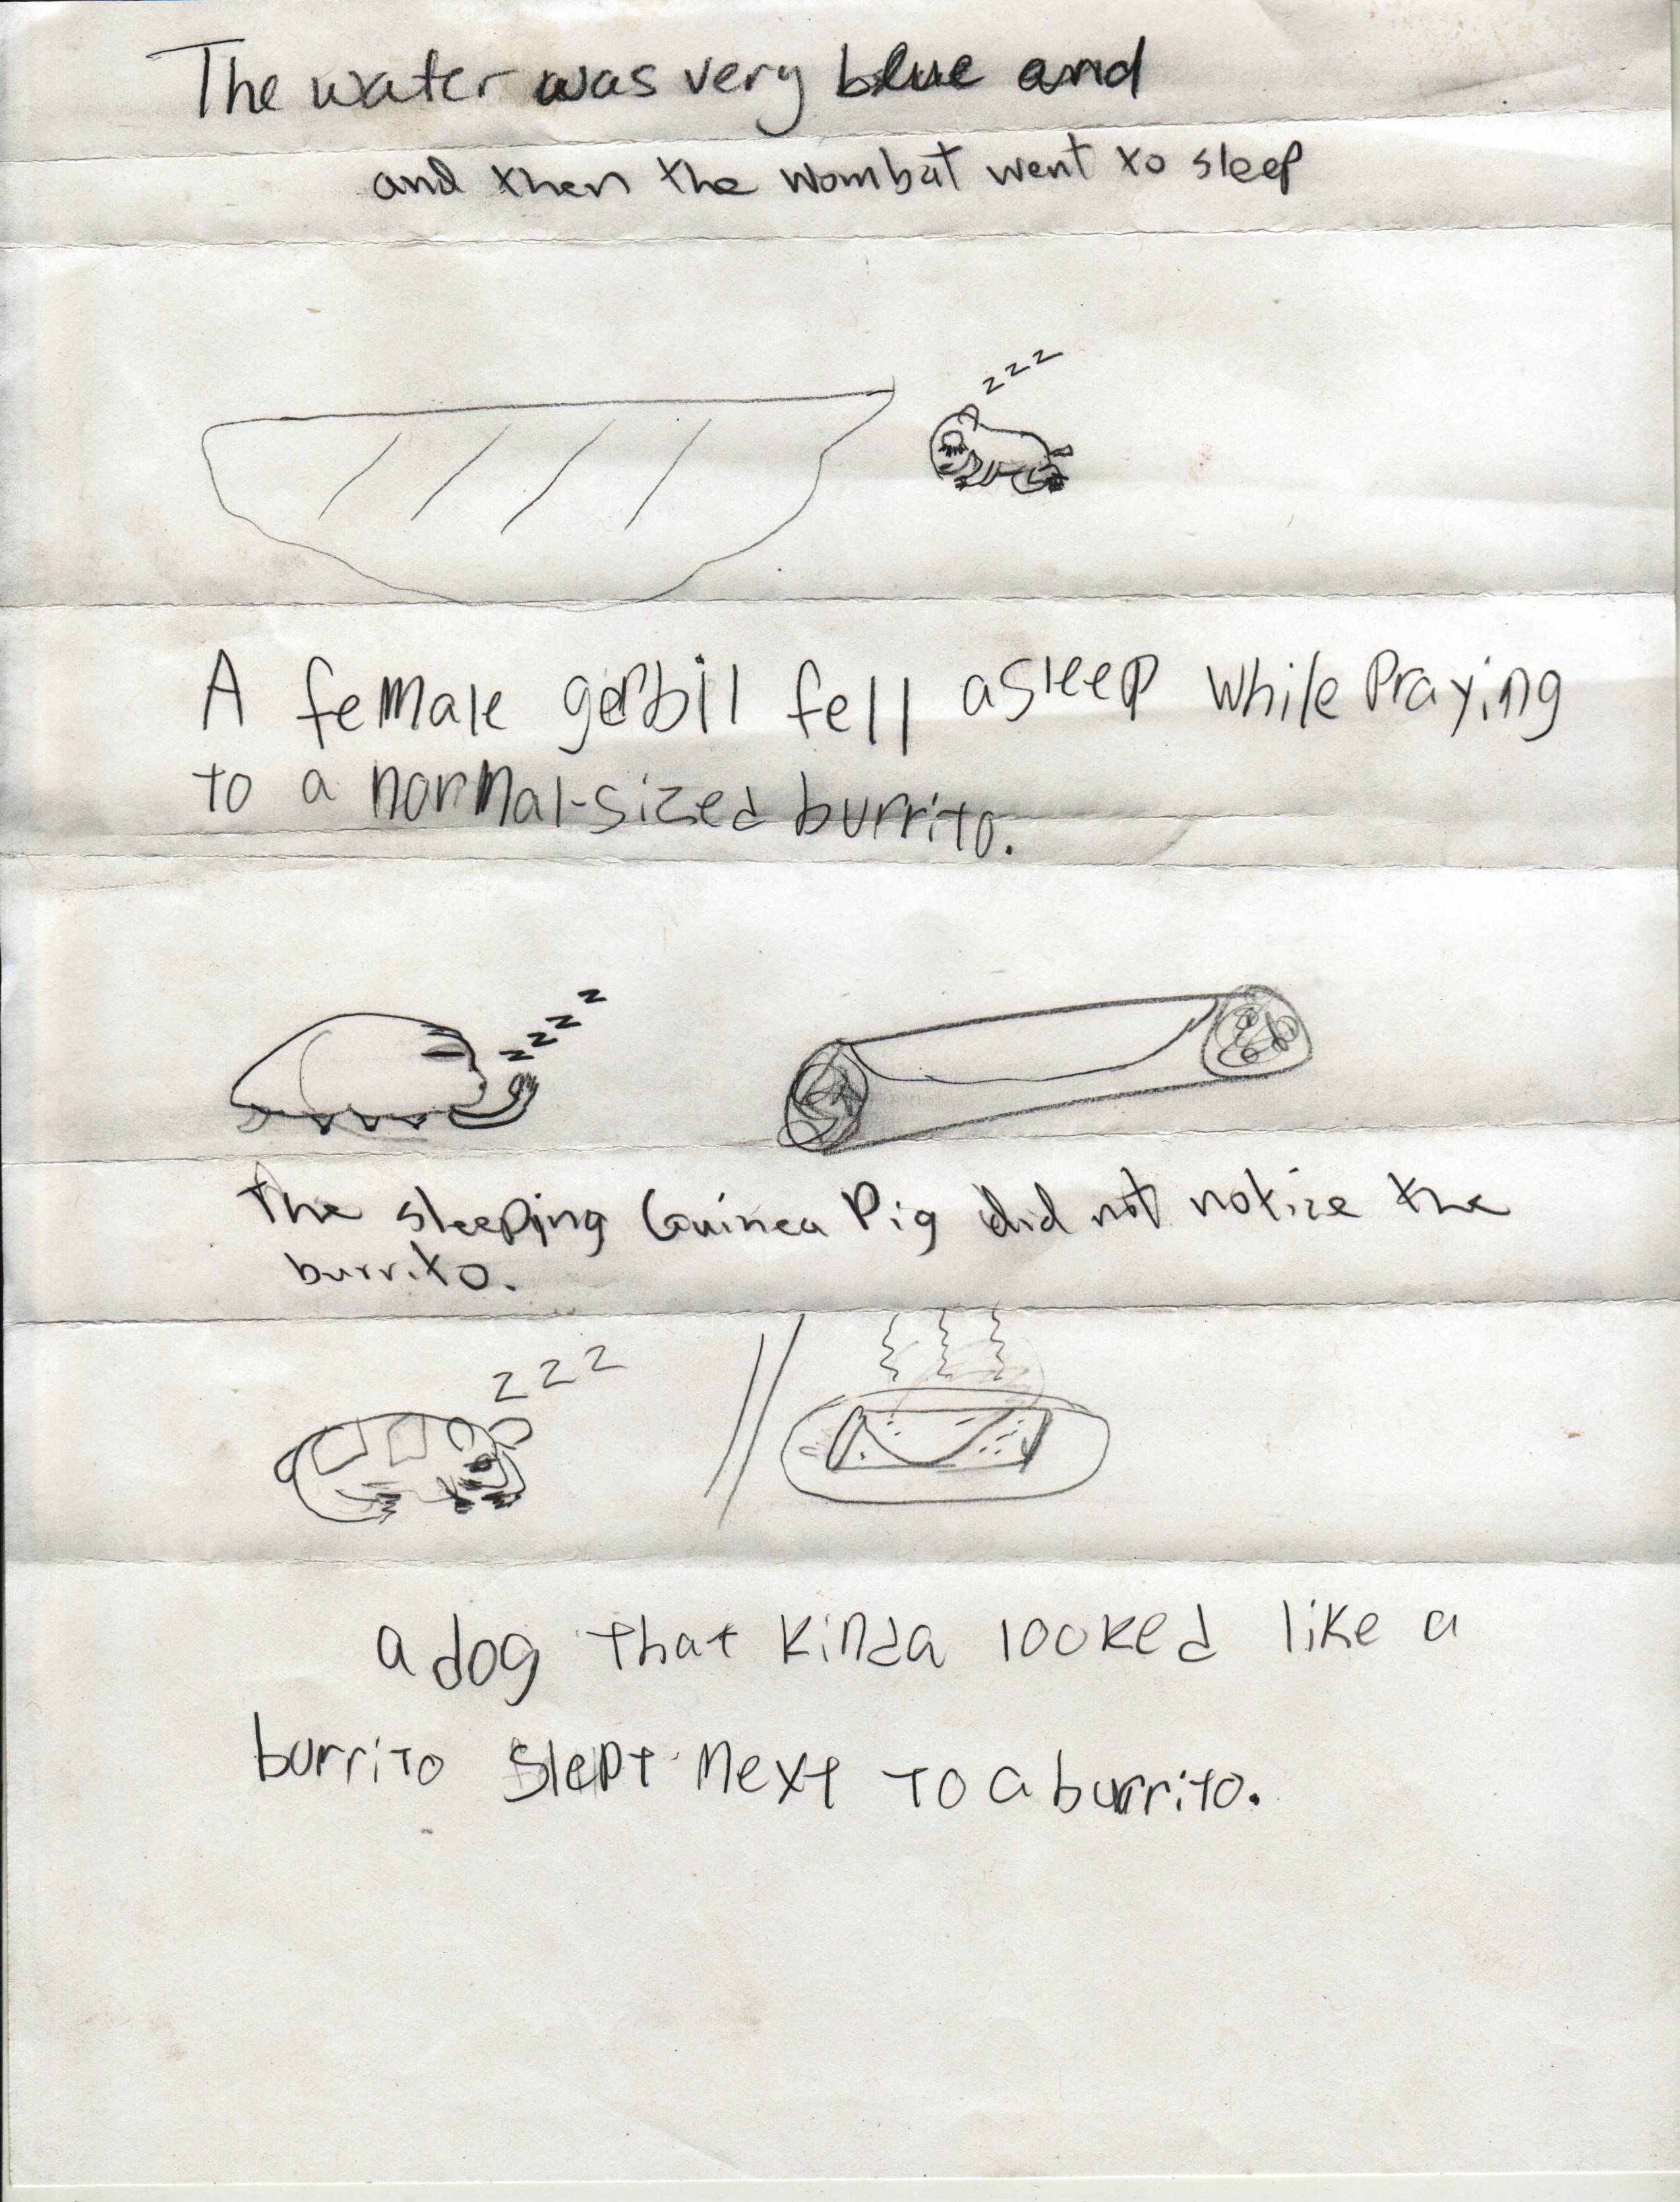 The water was very blue and
and then the wombat went to sleep
z z z
A female gerbil fell asleep while Praying
to a normal-sized burrito.
z z z z z
The sleeping Guinea Pig did not notice the
burrito.
z z z
a dog that kinda looked like a
burrito slept next to a burrito.